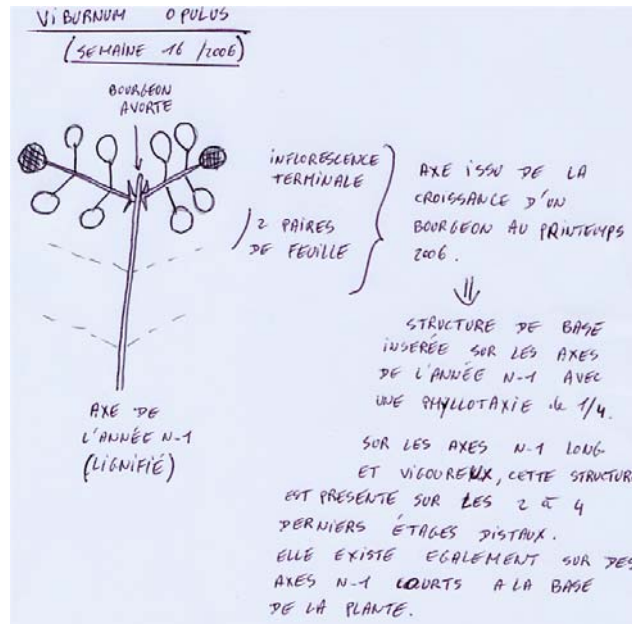 VIBURNUM OPULUS
(SEMAINE 16 /2006)
BOURGEON
AVORTE
INFLORESCENCE
TERMINALE
2 PAIRES
DE FEUILLE
AXE ISSU DE LA
CROISSANCE D'UN
BOURGEON AU PRINTEMPS
2006.
AXE DE
L'ANNÉE N-1
(LIGNIFIÉ)
STRUCTURE DE BASE
INSERÉE SUR LES AXES
DE L'ANNÉE N-1 AVEC
UNE PHYLLOTAXIE de 1/4.
SUR LES AXES N-1 LONG
ET VIGOUREUX, CETTE STRUCTURE
EST PRESENTE SUR LES 2 à 4
DERNIERS ÉTAGES DISTAUX.
ELLE EXISTE EGALEMENT SUR DES
AXES N-1 COURTS A LA BASE
DE LA PLANTE.